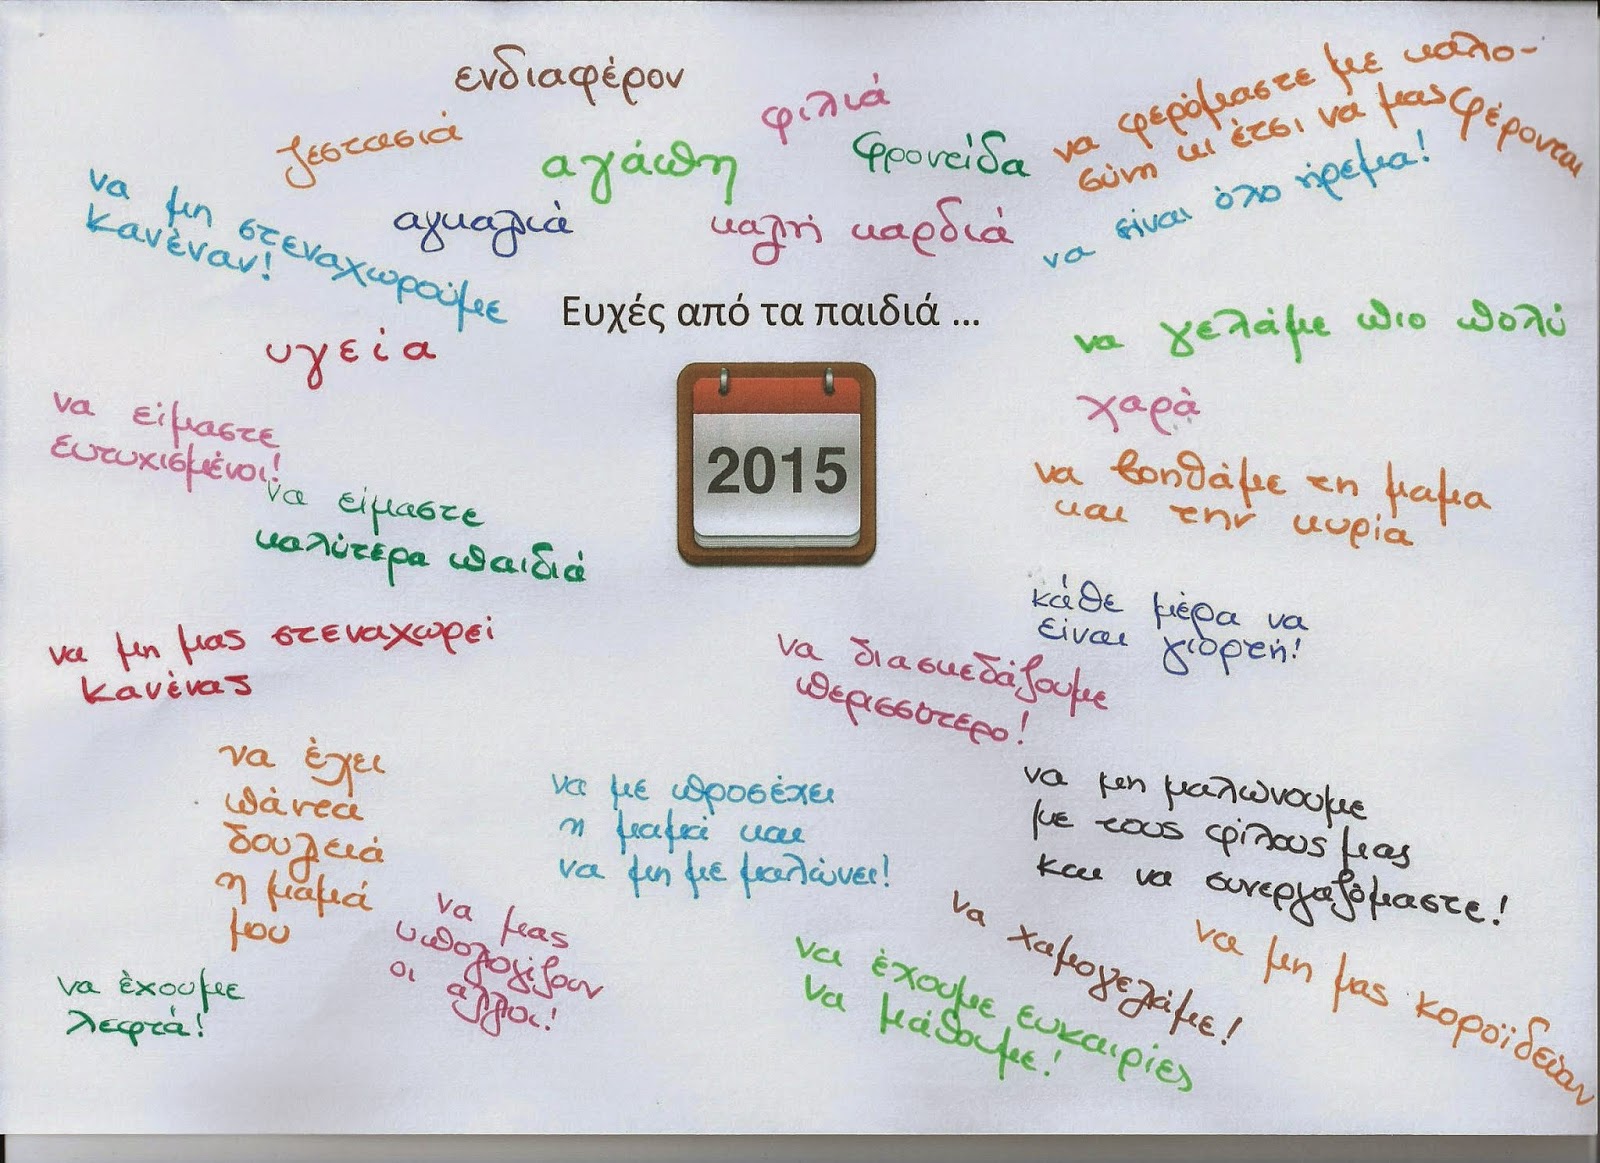 ενδιαφέρον
ζεστασιά
αγάπη
φιλιά
φροντίδα
να φερόμαστε με καλο-
σύνη κι έτσι να μας φέρονται
να είναι όλο ήρεμα!
να μη στεναχωρούμε
κανέναν!
αγκαλιά
καλή καρδιά
Ευχές από τα παιδιά ...
2015
υγεία
να γελάμε πιο πολύ
χαρά
να είμαστε
ευτυχισμένοι!
να βοηθάμε τη μαμα
και την κυρία
να είμαστε
καλύτερα παιδιά
κάθε μέρα να
είναι γιορτή!
να μη μας στεναχωρεί
κανένας
να διασκεδάζουμε
περισσότερο!
να έχει
πάντα
δουλειά
η μαμά
μου
να με προσέχει
η μαμά και
να μη με μαλώνει!
να μη μαλώνουμε
με τους φίλους μας
και να συνεργαζόμαστε!
να μας
υπολογίζουν
οι άλλοι!
να έχουμε
λεφτά!
να έχουμε ευκαιρίες
να μάθουμε!
να χαμογελάμε!
να μη μας κοροϊδεύαν